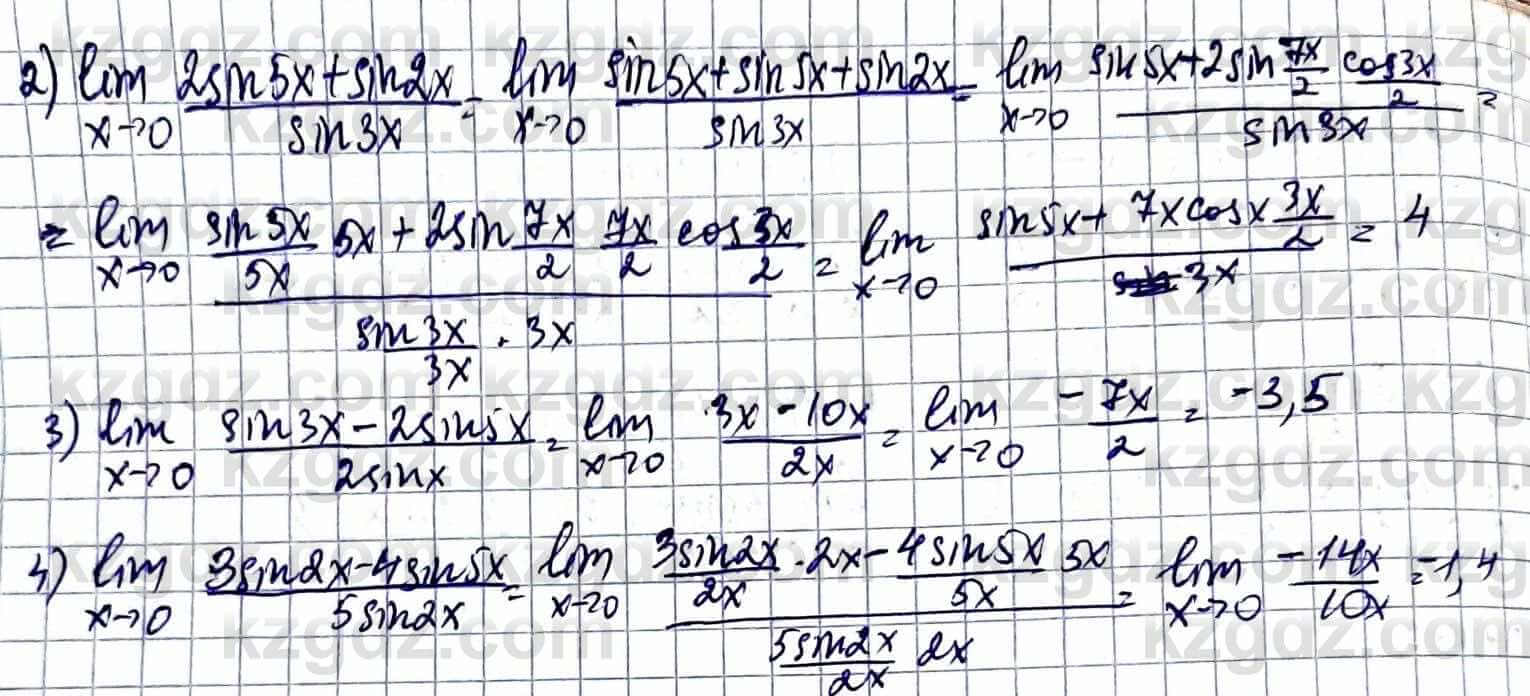 2) lim x→0 (2sin5x+sin2x)/(sin3x) = lim x→0 (sin5x+sin5x+sin2x)/(sin3x) = lim x→0 (sin5x+2sin 7x/2 cos 3x/2)/(sin3x) =
= lim x→0 (sin5x/5x 5x + 2sin 7x/2 7x/2 cos 3x/2)/(sin3x/3x · 3x) = lim x→0 (sin5x + 7x cosx 3x/2)/(3x) = 4
3) lim x→0 (sin3x-2sin5x)/(2sinx) = lim x→0 (3x-10x)/(2x) = lim x→0 -7x/2 = -3,5
4) lim x→0 (3sin2x-4sin5x)/(5sin2x) = lim x→0 (3sin2x/2x · 2x - 4sin5x/5x 5x)/(5sin2x/2x 2x) = lim x→0 -14x/10x = -1,4
kzgdz.com